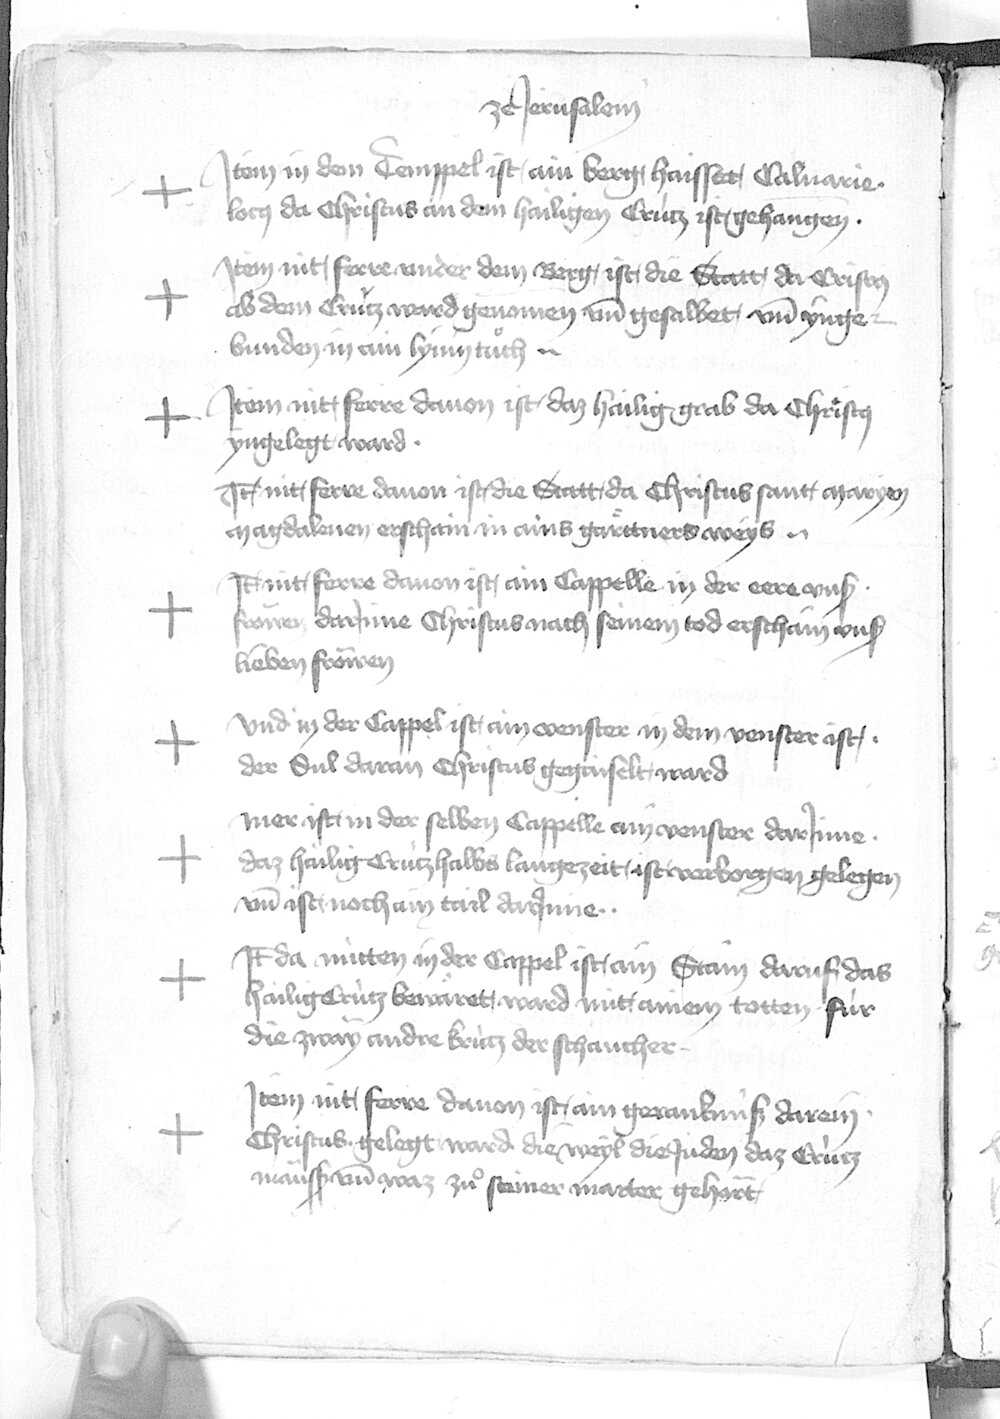 ze Jerusalem
+ Item in dem Temppel ist ain berg haisset Caluarie
locq da Christus an dem hailigen Crútz ist gehangen .
+ Item nit ferre vnder dem Berg ist die Statt da Cristq
ab dem Crútz ward genomen vn̄ gesalbet vn̄ ynge-
bunden in ain lynin tuͦch ~
+ Item nit ferre dauon ist daz hailig grab da Christq
yngelegt ward .
It̄ nit ferre dauon ist die Statt da Christus sant Maryen
Magdalenen erschain in ains gaͤrttners weys ~
+ It̄ nit ferre dauon ist ain Cappelle in der eere vnß
frowen darInne Christus nach seinem tod erschain vnß
lieben frowen
+ Vnd in der Cappel ist ain venster in dem venster ist .
der Sul daran Christus gegaiselt ward
+ mer ist in der selben Cappelle ain venster darInne .
daz hailig Crútz halbs lange zeit ist verborgen gelegen
vn̄ ist noch ain tail darInne . .
+ It̄ da mitten in der Cappel ist ain Stain daruff das
hailig Crútz bewäret ward mit ainem totten fúr
die zway andre krútz der schaucher
+ Item nit ferre dauon ist ain gevanknúß darein
Christus gelegt ward die weyl die Juden daz Crútz
vn̄ waz zuͦ seiner marter gehört